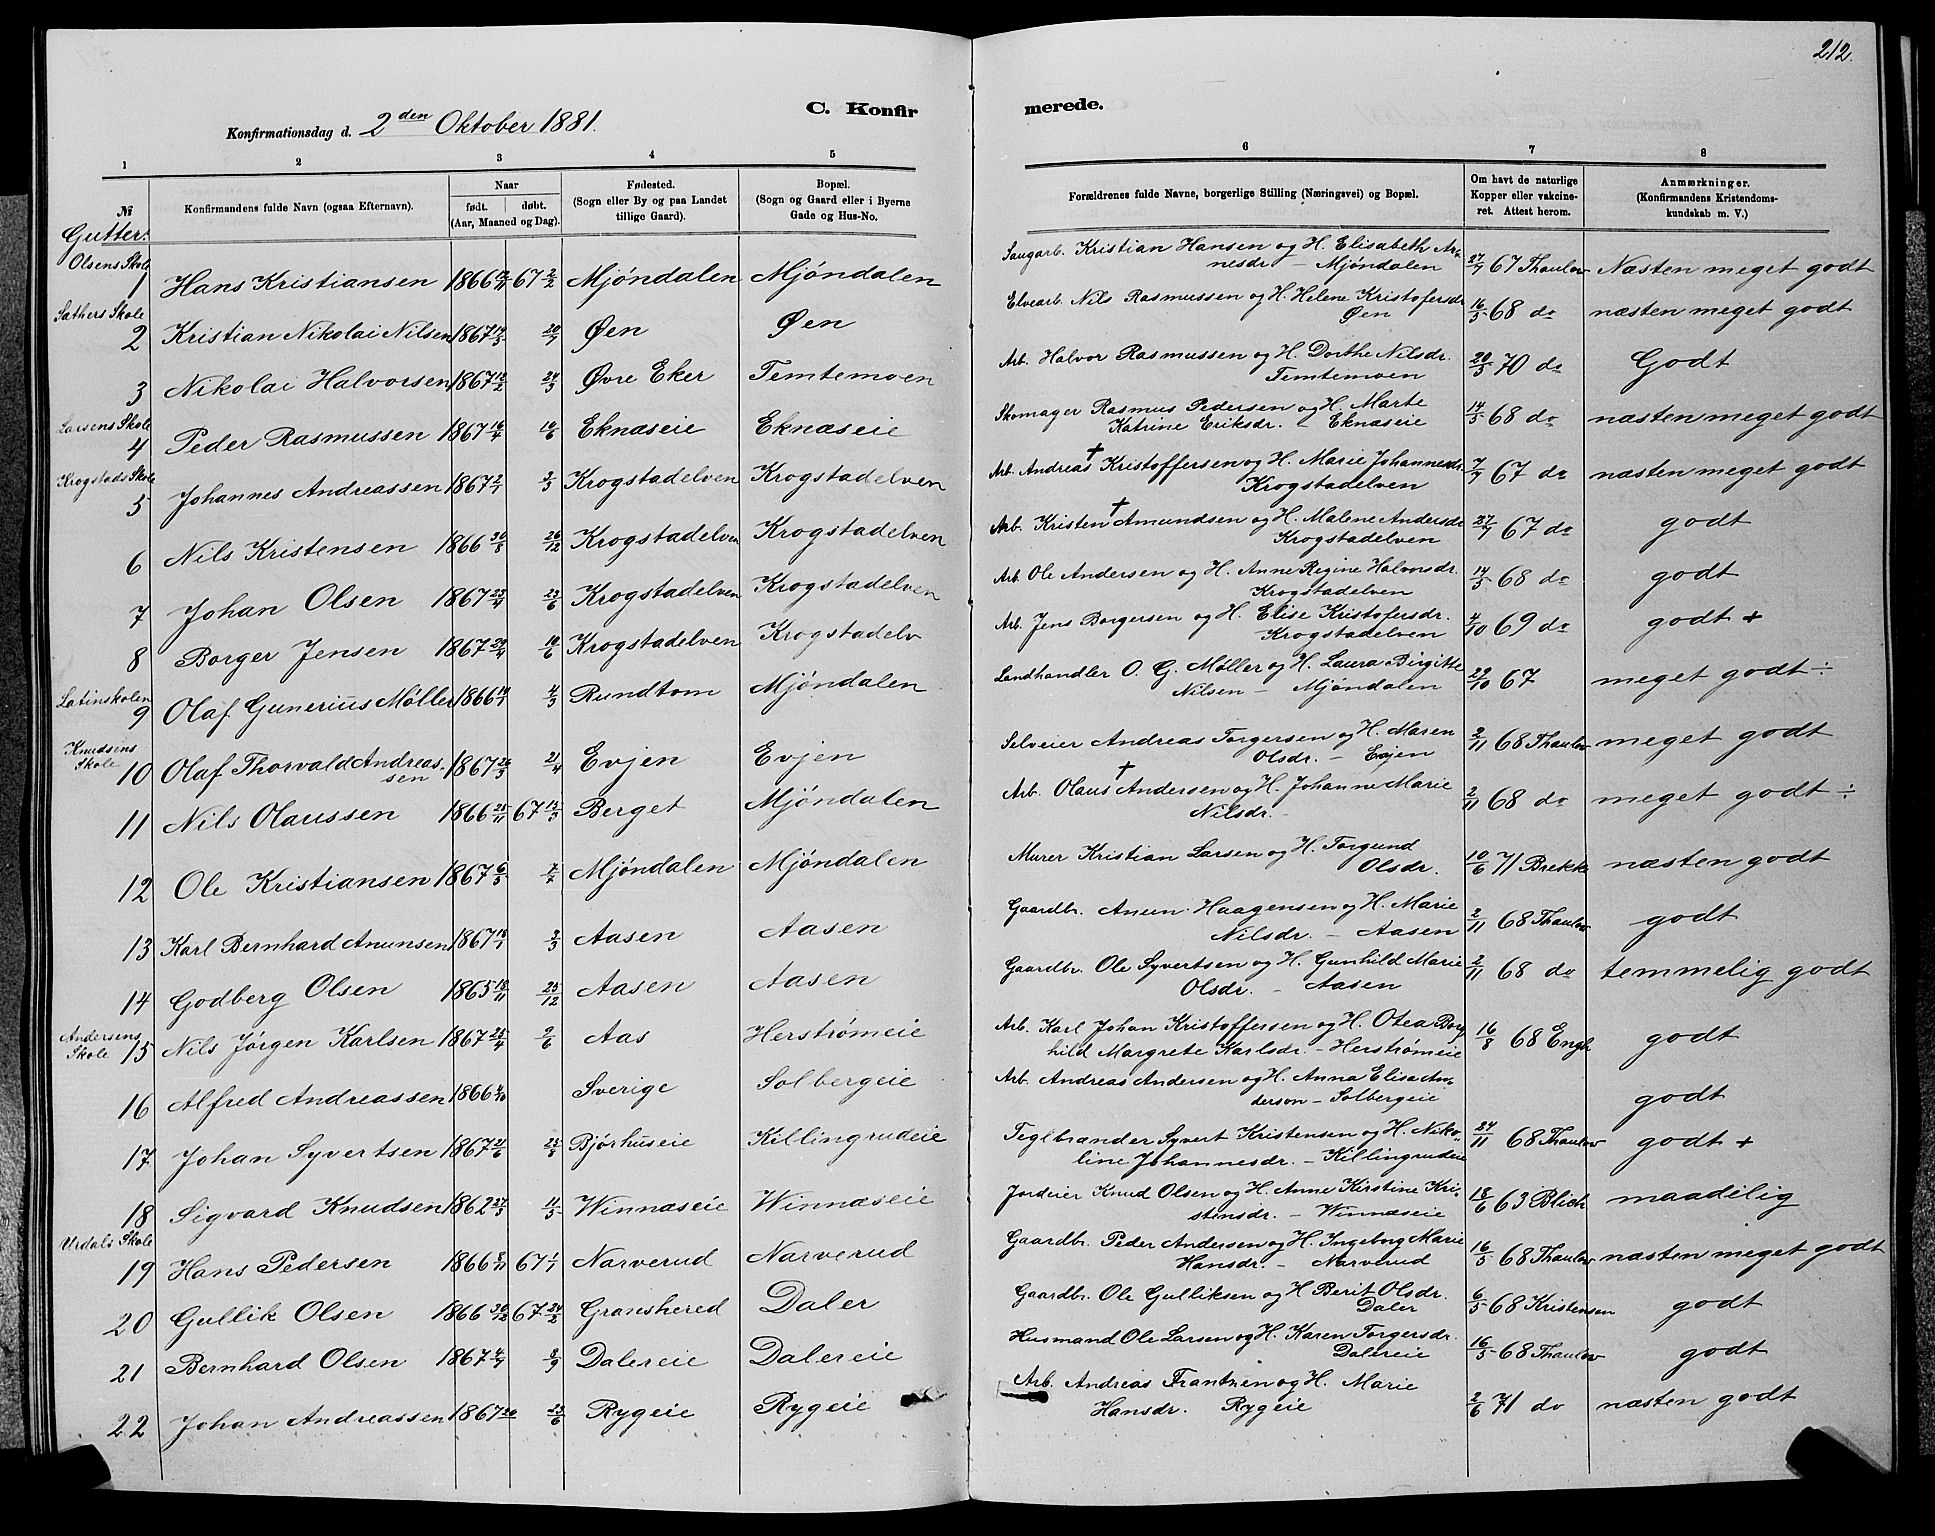 212.
C. Konfirmerede.
Konfirmationsdag d. 2den Oktober 1881.
1 2 3 4 5 6 7 8
№
Konfirmandens fulde Navn (ogsaa Efternavn).
Naar
født. døbt.
(Aar, Maaned og Dag).
Fødested.
(Sogn eller By og paa Landet
tillige Gaard).
Bopæl.
(Sogn og Gaard eller i Byerne
Gade og Hus-No.
Forældrenes fulde Navne, borgerlige Stilling (Næringsvei) og Bopæl.
Om havt de naturlige
Kopper eller vakcine-
ret. Attest herom.
Anmærkninger.
(Konfirmandens Kristendoms-
kundskab m. V.)
Gutter:
Olsens Skole
1 Hans Kristiansen 1866 67 2/2 Mjóndalen Mjóndalen Saugarb. Kristian Hansen og H. Elisabeth Ar-
nesdr. – Mjóndalen 27/7 67 Thaulow Næsten meget godt
Sathers Skole
2 Kristian Nikolai Nilsen 1867 20/7 Øen Øen Elvearb. Nils Rasmussen og H. Helene Kristofersdr
Øen 16/5 68 do næsten meget godt
3 Nikolai Halvorsen 1867 24/3 Øvre Eker Temtemoen Arb. Halvor Rasmussen og H. Dorthe Nilsdr.
Temtemoen 20/5 70 do Godt
Larsens Skole
4 Peder Rasmussen 1867 16/4 10/6 Eknæseie Eknæseie Skomager Rasmus Pedersen og H. Marte
Katrine Eriksdr. – Eknæseie 14/5 68 do næsten meget godt
Krogstads Skole
5 Johannes Andreassen 1867 2/1 3/3 Krogstadelven Krogstadelven Arb. Andreas † Kristoffersen og H. Marie Johannesdr.
Krogstadelven 7/7 67 do næsten meget godt
6 Nils Kristensen 1866 30/8 26/12 Krogstadelven Krogstadelven Arb. Kristen † Amundsen og H. Malene Andersdr
Krogstadelven 27/7 67 do godt
7 Johan Olsen 1867 23/4 23/6 Krogstadelven Krogstadelven Arb. Ole Andersen og H. Anne Regine Halvorsdr.
Krogstadelven 14/5 68 do godt
8 Borger Jensen 1867 29/4 10/6 Krogstadelven Krogstadelv Arb. Jens Borgersen og H. Elise Kristofersdr.
Krogstadelven 4/10 69 do godt +
Latinskolen
9 Olaf Gunerius Møller 1866 4/3 Rundtom Mjóndalen Landhandler O. G. Møller og H. Laura Birgitte
Nilsen – Mjóndalen 22/10 67 meget godt ÷
Knudsens
Skole
10 Olaf Thorvald Andreas-
sen 1867 21/4 Evjen Evjen Selveier Andreas Torgersen og H. Maren
Olsdr. – Evjen 2/11 68 Thaulow meget godt
11 Nils Olaussen 1866 67 Berget Mjóndalen Arb. Olaus † Andersen og H. Johanne Marie
Nilsdr. – 2/11 68 do meget godt ÷
12 Ole Kristiansen 1867 6/5 7/7 Mjóndalen Mjóndalen Murer Kristian Larsen og H. Torgund
Olsdr. 10/6 71 Brekke næsten godt
13 Karl Bernhard Anunsen 1867 3/3 Aasen Aasen Gaardbr. Anun Haagensen og H. Marie
Nilsdr. – Aasen 2/11 68 Thaulow godt
14 Godberg Olsen 1865 18/11 25/12 Aasen Aasen Gaardbr. Ole Syvertsen og H. Gunhild Marie
Olsdr. – Aasen 2/11 68 do temmelig godt
Andersens
Skole
15 Nils Jørgen Karlsen 1867 25/4 9/6 Aas Herstrømeie Arb. Karl Johan Kristoffersen og H. Otea Borg
hild Margrete Karlsdr. – Herstrømeie 16/8 68 Engh godt
16 Alfred Andreassen 1866 4/10 Sverige Solbergeie Arb. Andreas Andersen og H. Anna Elisa An-
derson – Solbergeie godt
17 Johan Syvertsen 1867 Bjórhuseie Killingrudeie Teglbrænder Syvert Kristensen og H. Niko-
line Johannesdr. – Killingrudeie 24/11 68 Thaulow godt +
18 Sigvard Knudsen 1862 27/3 11/5 Winnæseie Winnæseie Jordeier Knud Olsen og H. Anne Kirstine Kri-
stensdr. – Winnæseie 18/6 63 Blich maadelig
Urdals Skole
19 Hans Pedersen 1866 8/11 67 1/1 Narverud Narverud Gaardbr. Peder Andersen og H. Ingeborg Marie
Hansdr. – Narverud 16/5 68 Thaulow næsten meget godt
20 Gullik Olsen 1866 30/12 67 24/2 Gransherred Daler Gaardbr. Ole Gulliksen og H Berit Olsdr.
Daler 6/5 68 Kristensen godt
21 Bernhard Olsen 1867 4/7 8/9 Dalereie Dalereie Husmand Ole Larsen og H. Karen Torgersdr.
Dalereie 16/5 68 Thaulow godt
22 Johan Andreassen 1867 23/6 Rygeie Rygeie Arb. Andreas Frantzen og H. Marie
Hansdr. Rygeie 2/6 71 do næsten godt